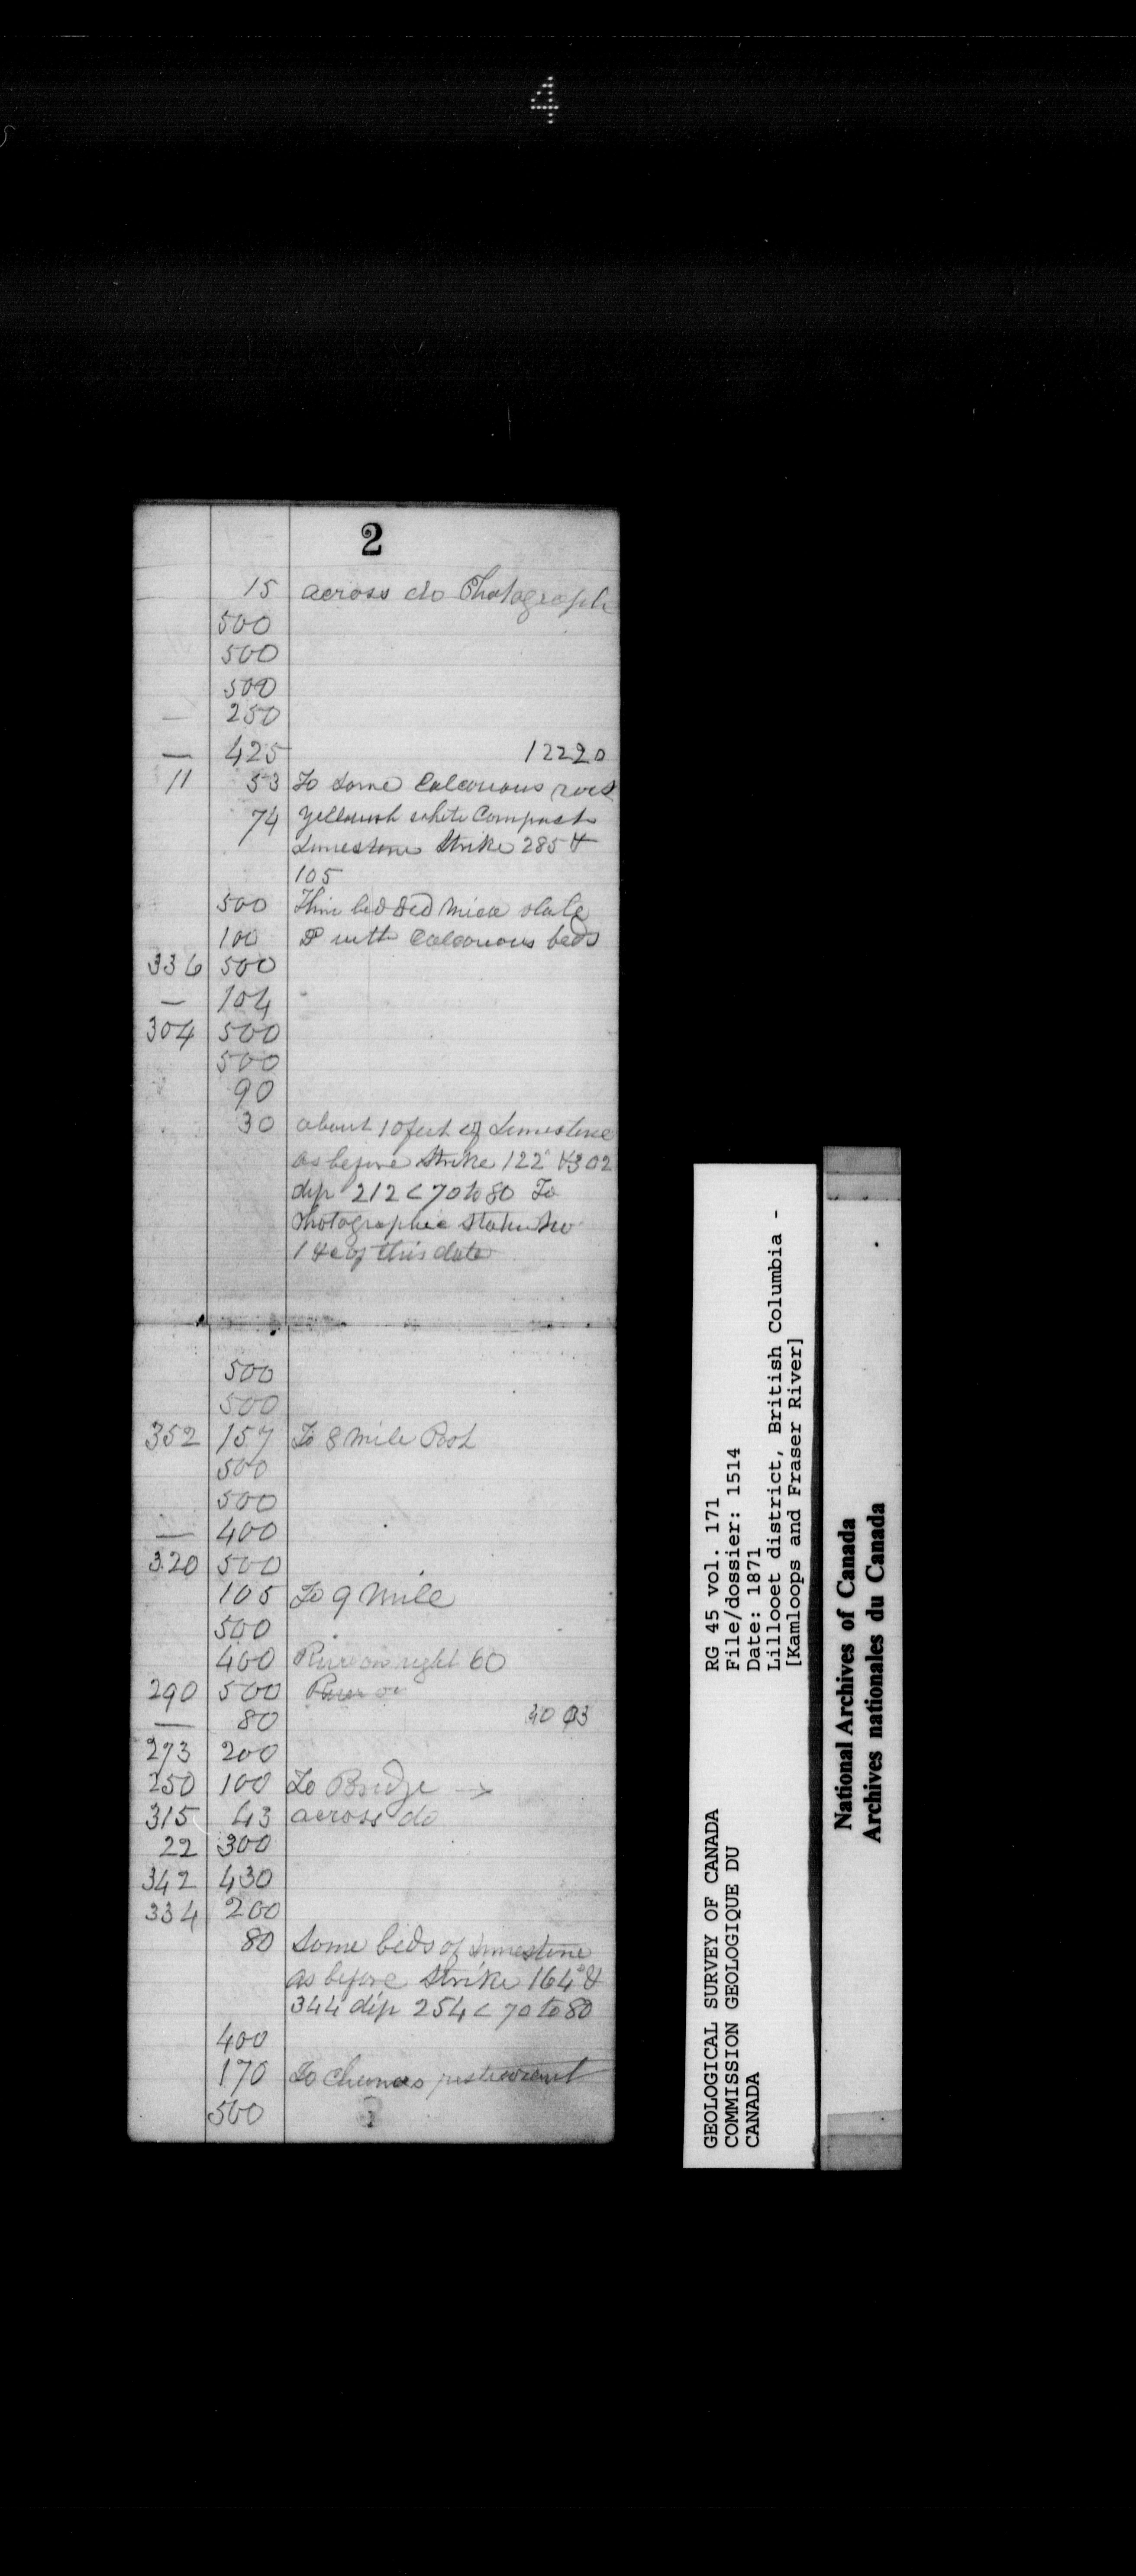 4
2
15 across do Photograph
500
500
500
— 250
— 425 12220
11 53 To some Calcareous rock
74 Yellowish white Compact
Limestone Strike 285 &
105
500 Thin bedded mica slate
100 Do with Calcareous beds
336 500
— 104
304 500
500
90
30 about 10 feet of Limestone
as before Strike 122° & 302
dip 212 < 70 to 80 To
Photographic Station No
1 &c of this date
500
500
352 157 To 8 Mile Post
500
500
— 400
320 500
105 To 9 Mile
500
400 River on right 60
290 500 River on
— 80
273 200
250 100 To Bridge →
315 43 across do
22 300
342 430
334 200
80 Some beds of Limestone
as before Strike 164° &
344 dip 254 < 70 to 80
400
170 To restaurant
500
GEOLOGICAL SURVEY OF CANADA
COMMISSION GEOLOGIQUE DU
CANADA
RG 45 vol. 171
File/dossier: 1514
Date: 1871
Lillooet district, British Columbia -
[Kamloops and Fraser River]
National Archives of Canada
Archives nationales du Canada